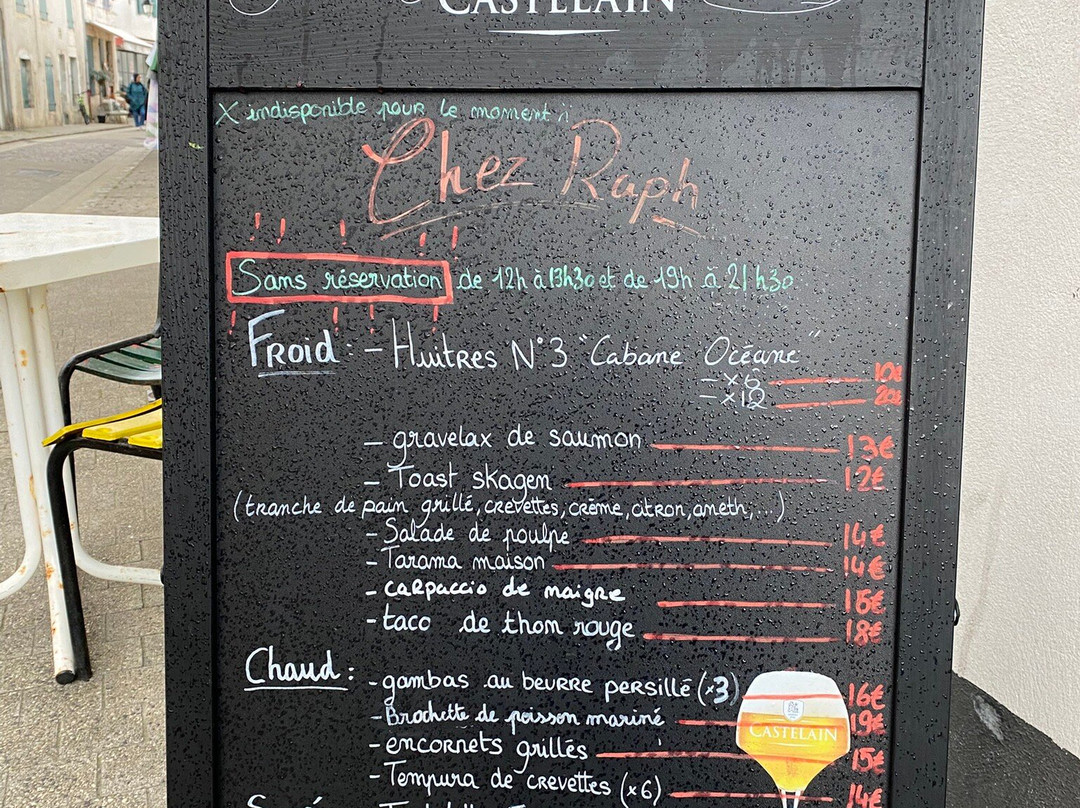 CASTELAIN
X indisponible pour le moment !!
Chez Raph
Sans réservation de 12h à 13h30 et de 19h à 21h30
FROID : - Huitres N°3 "Cabane Océane"
- x6 10€
- x12 20€
- gravelax de saumon 13€
- Toast skagen 12€
(tranche de pain grillé, crevettes, crème, citron, aneth, ...)
- Salade de poulpe 14€
- Tarama maison 14€
- carpaccio de maigre 15€
- taco de thon rouge 18€
Chaud : - gambas au beurre persillé (x3) 16€
- Brochette de poisson mariné 19€
CASTELAIN
- encornets grillés 15€
- Tempura de crevettes (x6) 14€